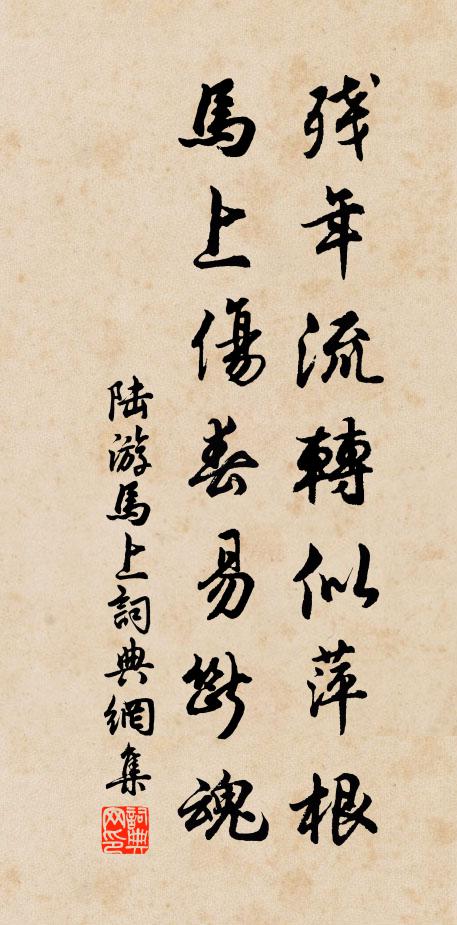 残年流轉似萍根
馬上傷春易斷魂
陸游馬上詞典網集
詞典網印